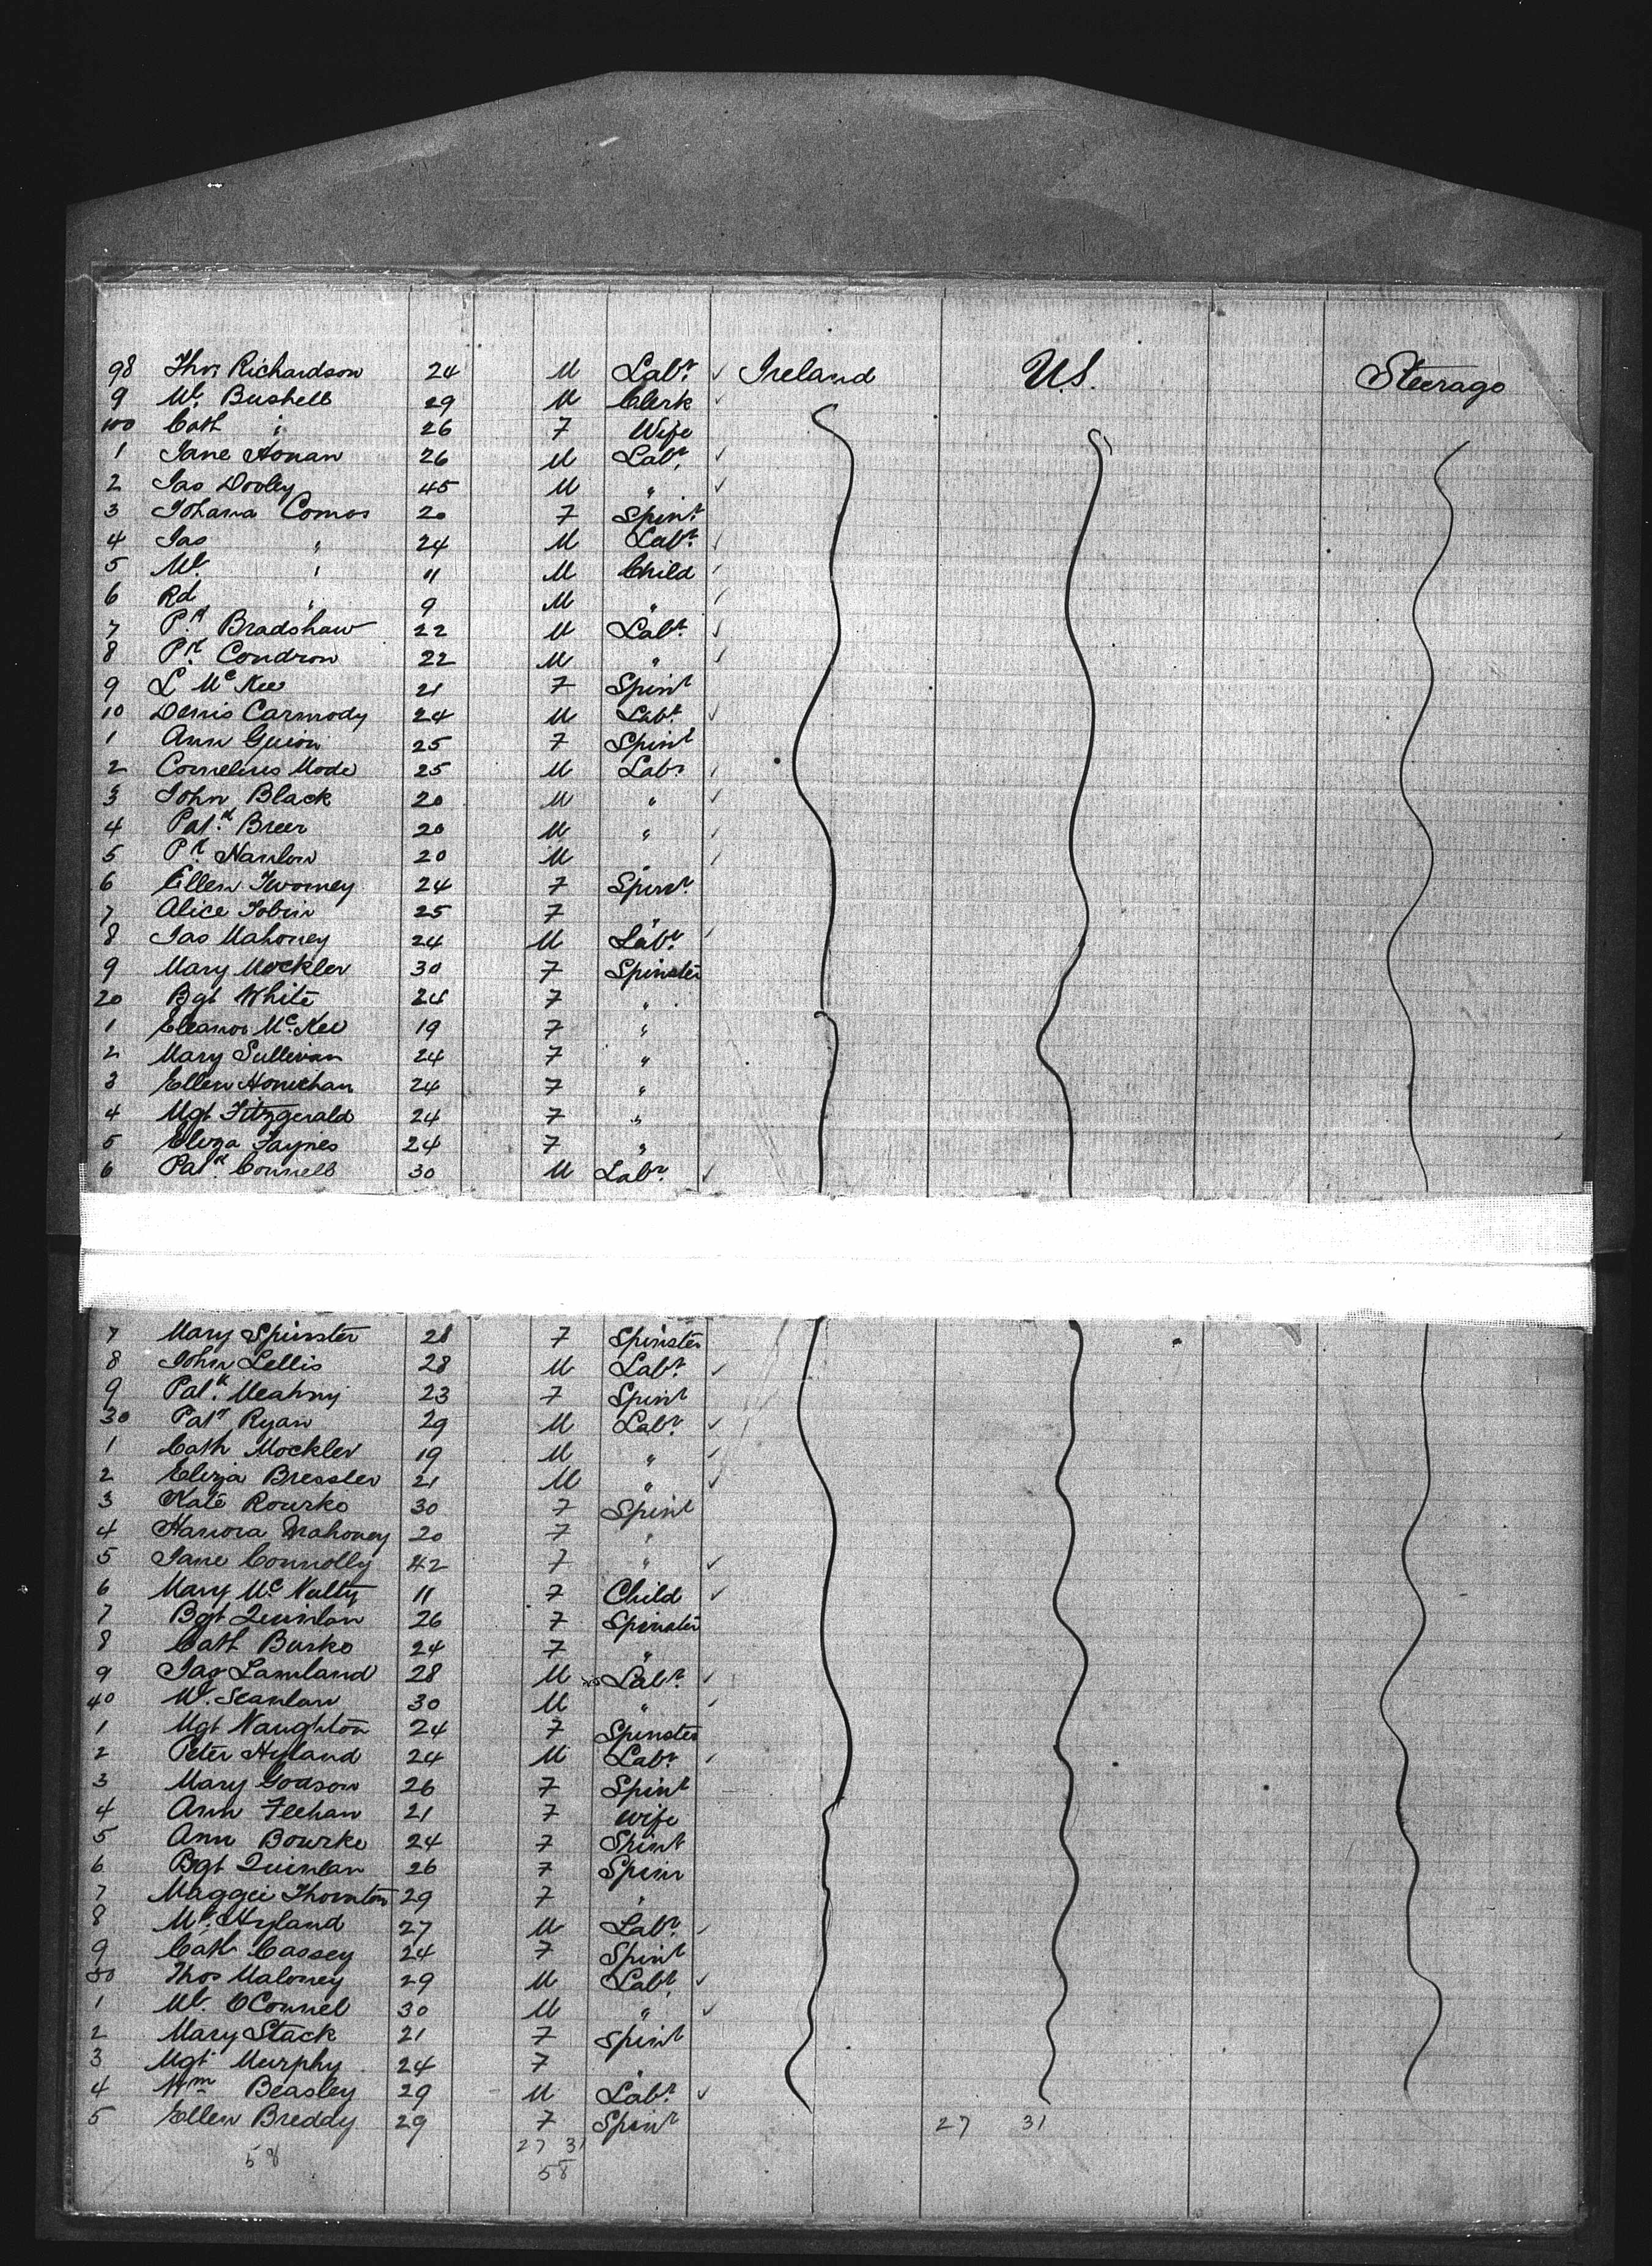 98 Thos Richardson 24 M Labr. ✓ Ireland U.S. Steerage
9 Ml. Bushell 29 M Clerk ✓
100 Cath " 26 F Wife
1 Jane Honan 26 M Labr. ✓
2 Jas Dooley 45 M " ✓
3 Johana Comos 20 F Spinr.
4 Jas " 24 M Labr. ✓
5 Ml. " 11 M Child ✓
6 Rd " 9 M " ✓
7 Pk. Bradshaw 22 M Labr. ✓
8 Pk. Condron 22 M " ✓
9 L McKee 21 F Spinr
10 Denis Carmody 24 M Labr. ✓
1 Ann 25 F Spinr
2 Cornelius Mode 25 M Labr ✓
3 John Black 20 M " ✓
4 Patk. Breer 20 M " ✓
5 Pk. Hanlon 20 M " ✓
6 Ellen Twomey 24 F Spinr.
7 Alice Tobin 25 F "
8 Jas Mahoney 24 M Labr. ✓
9 Mary Mockler 30 F Spinster
20 Bgt White 24 F "
1 Eleanor McKee 19 F "
2 Mary Sullivan 24 F "
3 Ellen Honichan 24 F "
4 Mgt Fitzgerald 24 F "
5 Eliza Jaynes 24 F "
6 Patk. Connell 30 M Labr. ✓
7 Mary Spinster 28 F Spinster
8 John Lellis 28 M Labr. ✓
9 Patk. 23 F Spinr
30 Patk Ryan 29 M Labr. ✓
1 Cath Mockler 19 M " ✓
2 Eliza Bressler 21 M " ✓
3 Kate Rourke 30 F Spinr
4 Hanora Mahoney 20 F "
5 Jane Connolly 42 F " ✓
6 Mary McNulty 11 F Child ✓
7 Bgt Quinlan 26 F Spinster
8 Cath Burke 24 F "
9 Jas 28 M Labr. ✓
40 Ml. Scanlan 30 M " ✓
1 Mgt Naughton 24 F Spinster
2 Peter Hyland 24 M Labr. ✓
3 Mary Godson 26 F Spinr
4 Ann Feehan 21 F wife
5 Ann Bourke 24 F Spinr
6 Bgt Quinlan 26 F Spinr
7 Maggie Thornton 29 F "
8 Ml. Hyland 27 M Labr. ✓
9 Cath Cassey 24 F Spinr
50 Thos Maloney 29 M Labr. ✓
1 Ml. OConnel 30 M " ✓
2 Mary Stack 21 F Spinr
3 Mgt Murphy 24 F "
4 Wm Beasley 29 M Labr. ✓
5 Ellen Breddy 29 F Spinr 27 31
27 31
58 58